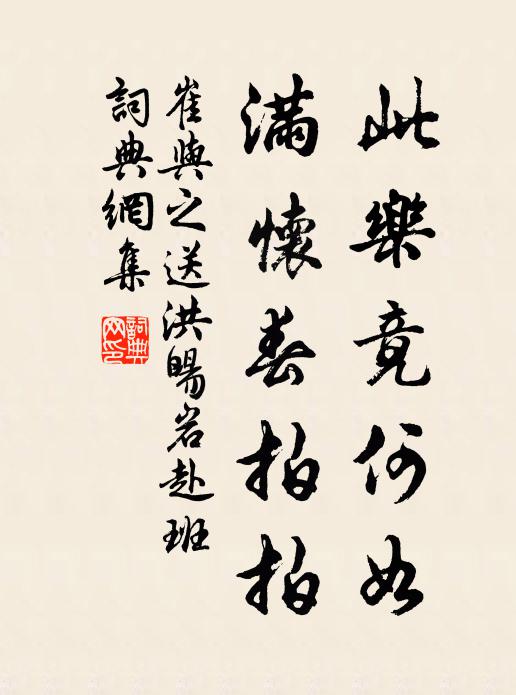 此樂竟何如
滿懷春拍拍
崔與之送洪暘岩赴班
詞典網集
詞典
网印